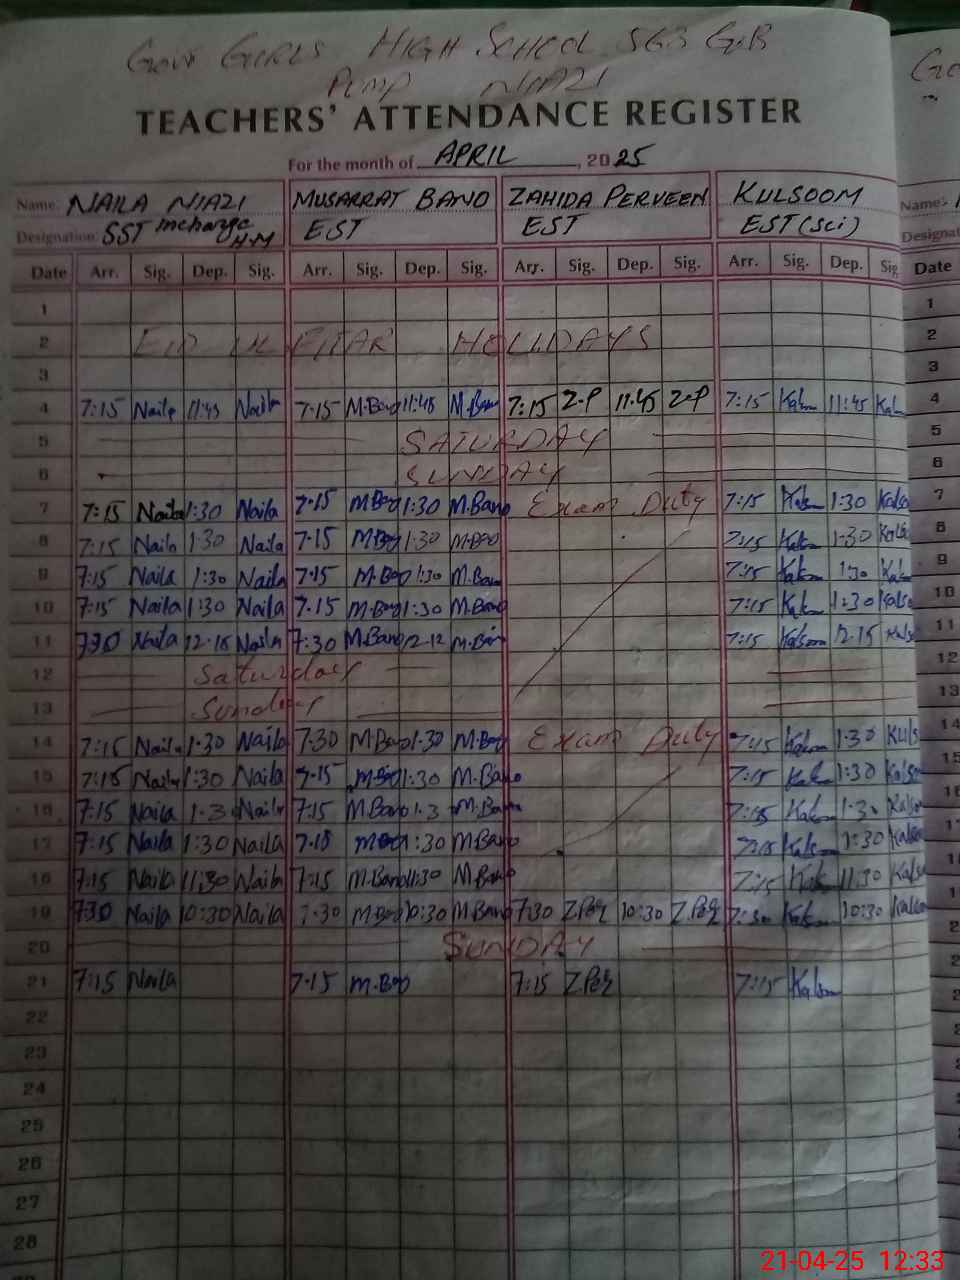 Govt GIRLS HIGH SCHOOL 563 G.B
PUMP NIAZI
TEACHERS' ATTENDANCE REGISTER
For the month of APRIL, 2025
Name. NAILA NIAZI MUSARRAT BANO ZAHIDA PERVEEN KULSOOM Name:-
Designation SST incharge H.M EST EST EST (Sci) Designat
Date Arr. Sig. Dep. Sig. Arr. Sig. Dep. Sig. Arr. Sig. Dep. Sig. Arr. Sig. Dep. Sig Date
1
2 EID UL FITAR HOLLIDAYS
3
4 7:15 Naila 11:45 Naila 7:15 M.Bano 11:45 M.Bano 7:15 Z.P 11:45 Z.P 7:15 Kalsom 11:45
5 SATURDAY
6 SUNDAY
7 7:15 Naila 1:30 Naila 7.15 M.Bano 1:30 M.Bano Exam Duty 7:15 Kalsom 1:30 Kalso
8 7:15 Naila 1:30 Naila 7.15 M.Bano 1:30 M.Bano 7:15 Kalsom 1:30 Kalso
9 7:15 Naila 1:30 Naila 7.15 M.Bano 1:30 M.Bano 7:15 Kalsom 1:30
10 7:15 Naila 1:30 Naila 7.15 M.Bano 1:30 M.Bano 7:15 Kalsom 1:30 Kalso
11 730 Naila 12-15 Naila 7:30 M.Bano 12-12 M.Bano 7:15 Kalsom 12.15 Kalso
12 Saturday
13 Sunday
14 7:15 Naila 1:30 Naila 7.30 M.Bano 1.30 M.Bano Exam Duty 7:15 Kalsom 1:30
15 7:15 Naila 1:30 Naila 7.15 M.Bano 1:30 M.Bano 7:15 Kalsom 1:30 Kalso
16 7:15 Naila 1.3 Naila 7:15 M.Bano 1.3 M.Bano 7:15 Kalsom 1.3 Kalso
17 7:15 Naila 1:30 Naila 7.15 M.Bano 1:30 M.Bano 7:15 Kalsom 1:30 Kalso
18 7:15 Naila 11:30 Naila 7:15 M.Bano 11:30 M.Bano 7:15 Kalsom 11.30 Kalso
19 730 Naila 10:30 Naila 7.30 M.Bano 10:30 M.Bano 7:30 Z.Per 10:30 Z.Per 7:30 Kalsom 10:30 Kalso
20 SUNDAY
21 7:15 Naila 7.15 M.Bano 7:15 Z.Per 7:15 Kalsom
22
23
24
25
26
27
28
21-04-25 12:33